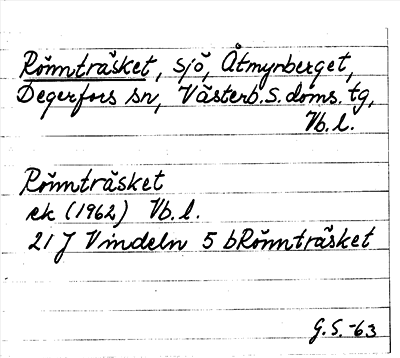 Rönnträsket, sjö, Åtmyrberget,
Degerfors sn, Västerb. S. doms. tg,
Vb. l.
Rönnträsket
ek (1962) Vb. l.
21 J Vindeln 5 b Rönnträsket
G. S. -63